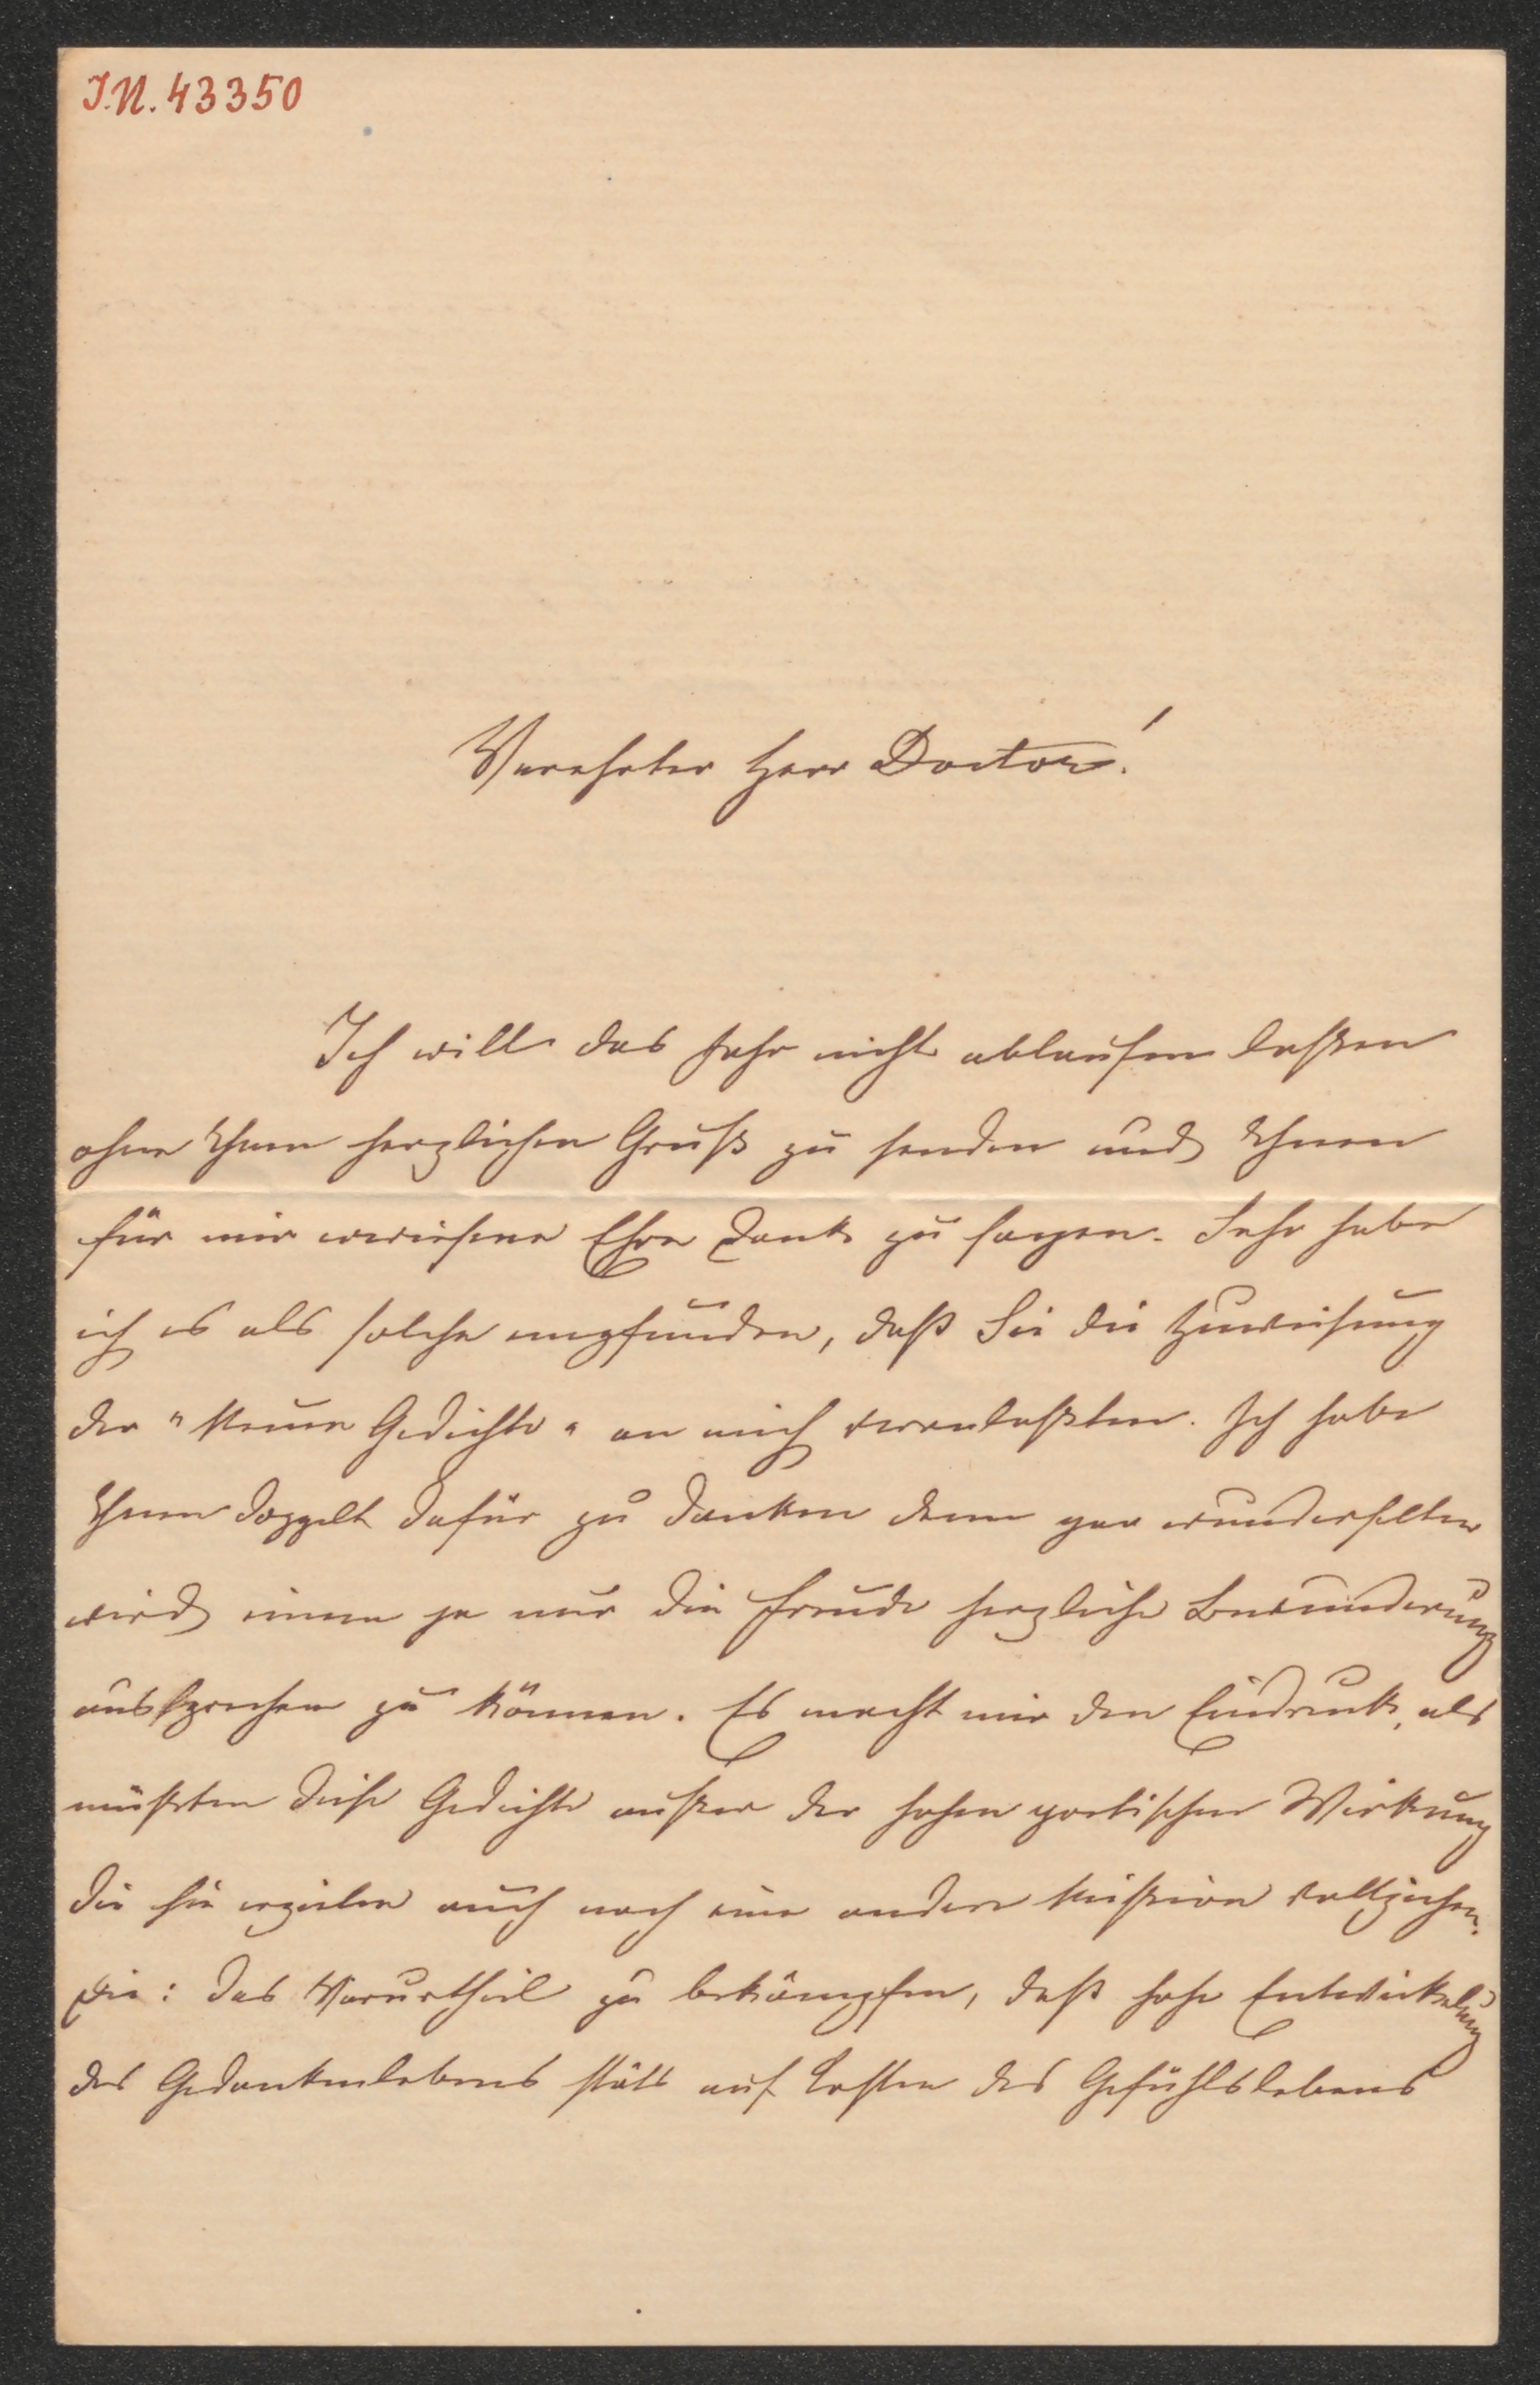 I.N. 43350
Verehrter Herr Doctor!
Ich will das Jahr nicht ablaufen laßen
ohne Ihnen herzlichen Gruß zu senden und Ihnen
für mir erwiesene Ehre Dank zu sagen. Sehr habe
ich es als solche empfunden, daß Sie die Zuweisung
der "Neuen Gedichte" an mich veranlaßten. Ich habe
Ihnen doppelt dafür zu danken denn gar wunderselten
wird einem ja nur die Freude herzliche Bewunderung
aussprechen zu können. Es macht mir den Eindruck, als
müßten diese Gedichte außer der hohen poetischen Wirkung
die sie erzielen auch noch eine andere Mission vollziehen.
Die: das Vorurtheil zu bekämpfen, daß hohe Entwickelung
des Gedankenlebens stäts auf Kosten des Gefühlslebens